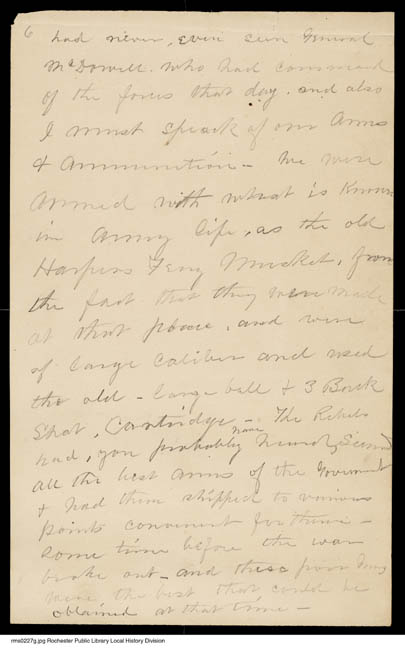 6
had never, even seen General
McDowell. who had command
of the forces that day. and also
I must speak of our Arms
& Ammunition - We were
armed with what is known
in Army life, as the old
Harpers Ferry Musket, from
the fact that they were made
at that place, and were
of large caliber and used
the old - large ball & 3 Buck
Shot, Cartridge - The Rebels
had, you probably have heard,
all the best arms of the Goverment
& had them shipped to various
points convenient for them -
some time before the war
broke out - and these guns
were the best that could be
obtained at that time -
rms0227g.jpg Rochester Public Library Local History Division